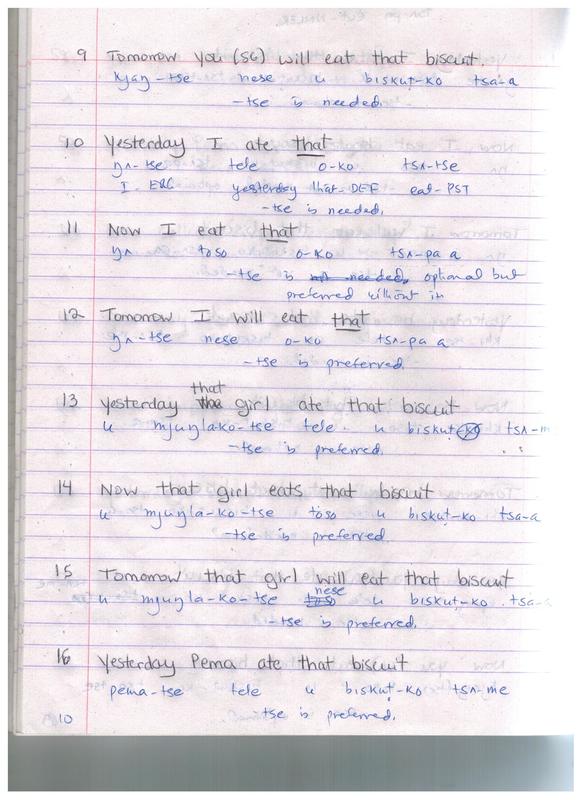 9 Tomorrow you (SG) will eat that biscuit
ɲaŋ-tse nese u biskuʈ-ko tsa-a
-tse is needed.
10 Yesterday I ate that
ŋʌ-tse tele o-ko tsʌ-tse
I-ERG yesterday that-DEF eat-PST
-tse is needed.
11 Now I eat that
ŋʌ toso o-ko tsʌ-pa a
-tse is optional but
preferred without it
12 Tomorrow I will eat that
ŋʌ-tse nese o-ko tsʌ-pa a
-tse is preferred.
13 Yesterday that girl ate that biscuit
u mjuŋla-ko-tse tele. u biskuʈ tsʌ-me
-tse is preferred.
14 Now that girl eats that biscuit
u mjuŋla-ko-tse toso u biskuʈ-ko tsa-a
-tse is preferred
15 Tomorrow that girl will eat that biscuit
u mjuŋla-ko-tse nese u biskuʈ-ko tsa-a
-tse is preferred.
16 Yesterday Pema ate that biscuit
pema-tse tele u biskuʈ-ko tsʌ-me
tse is preferred.
10